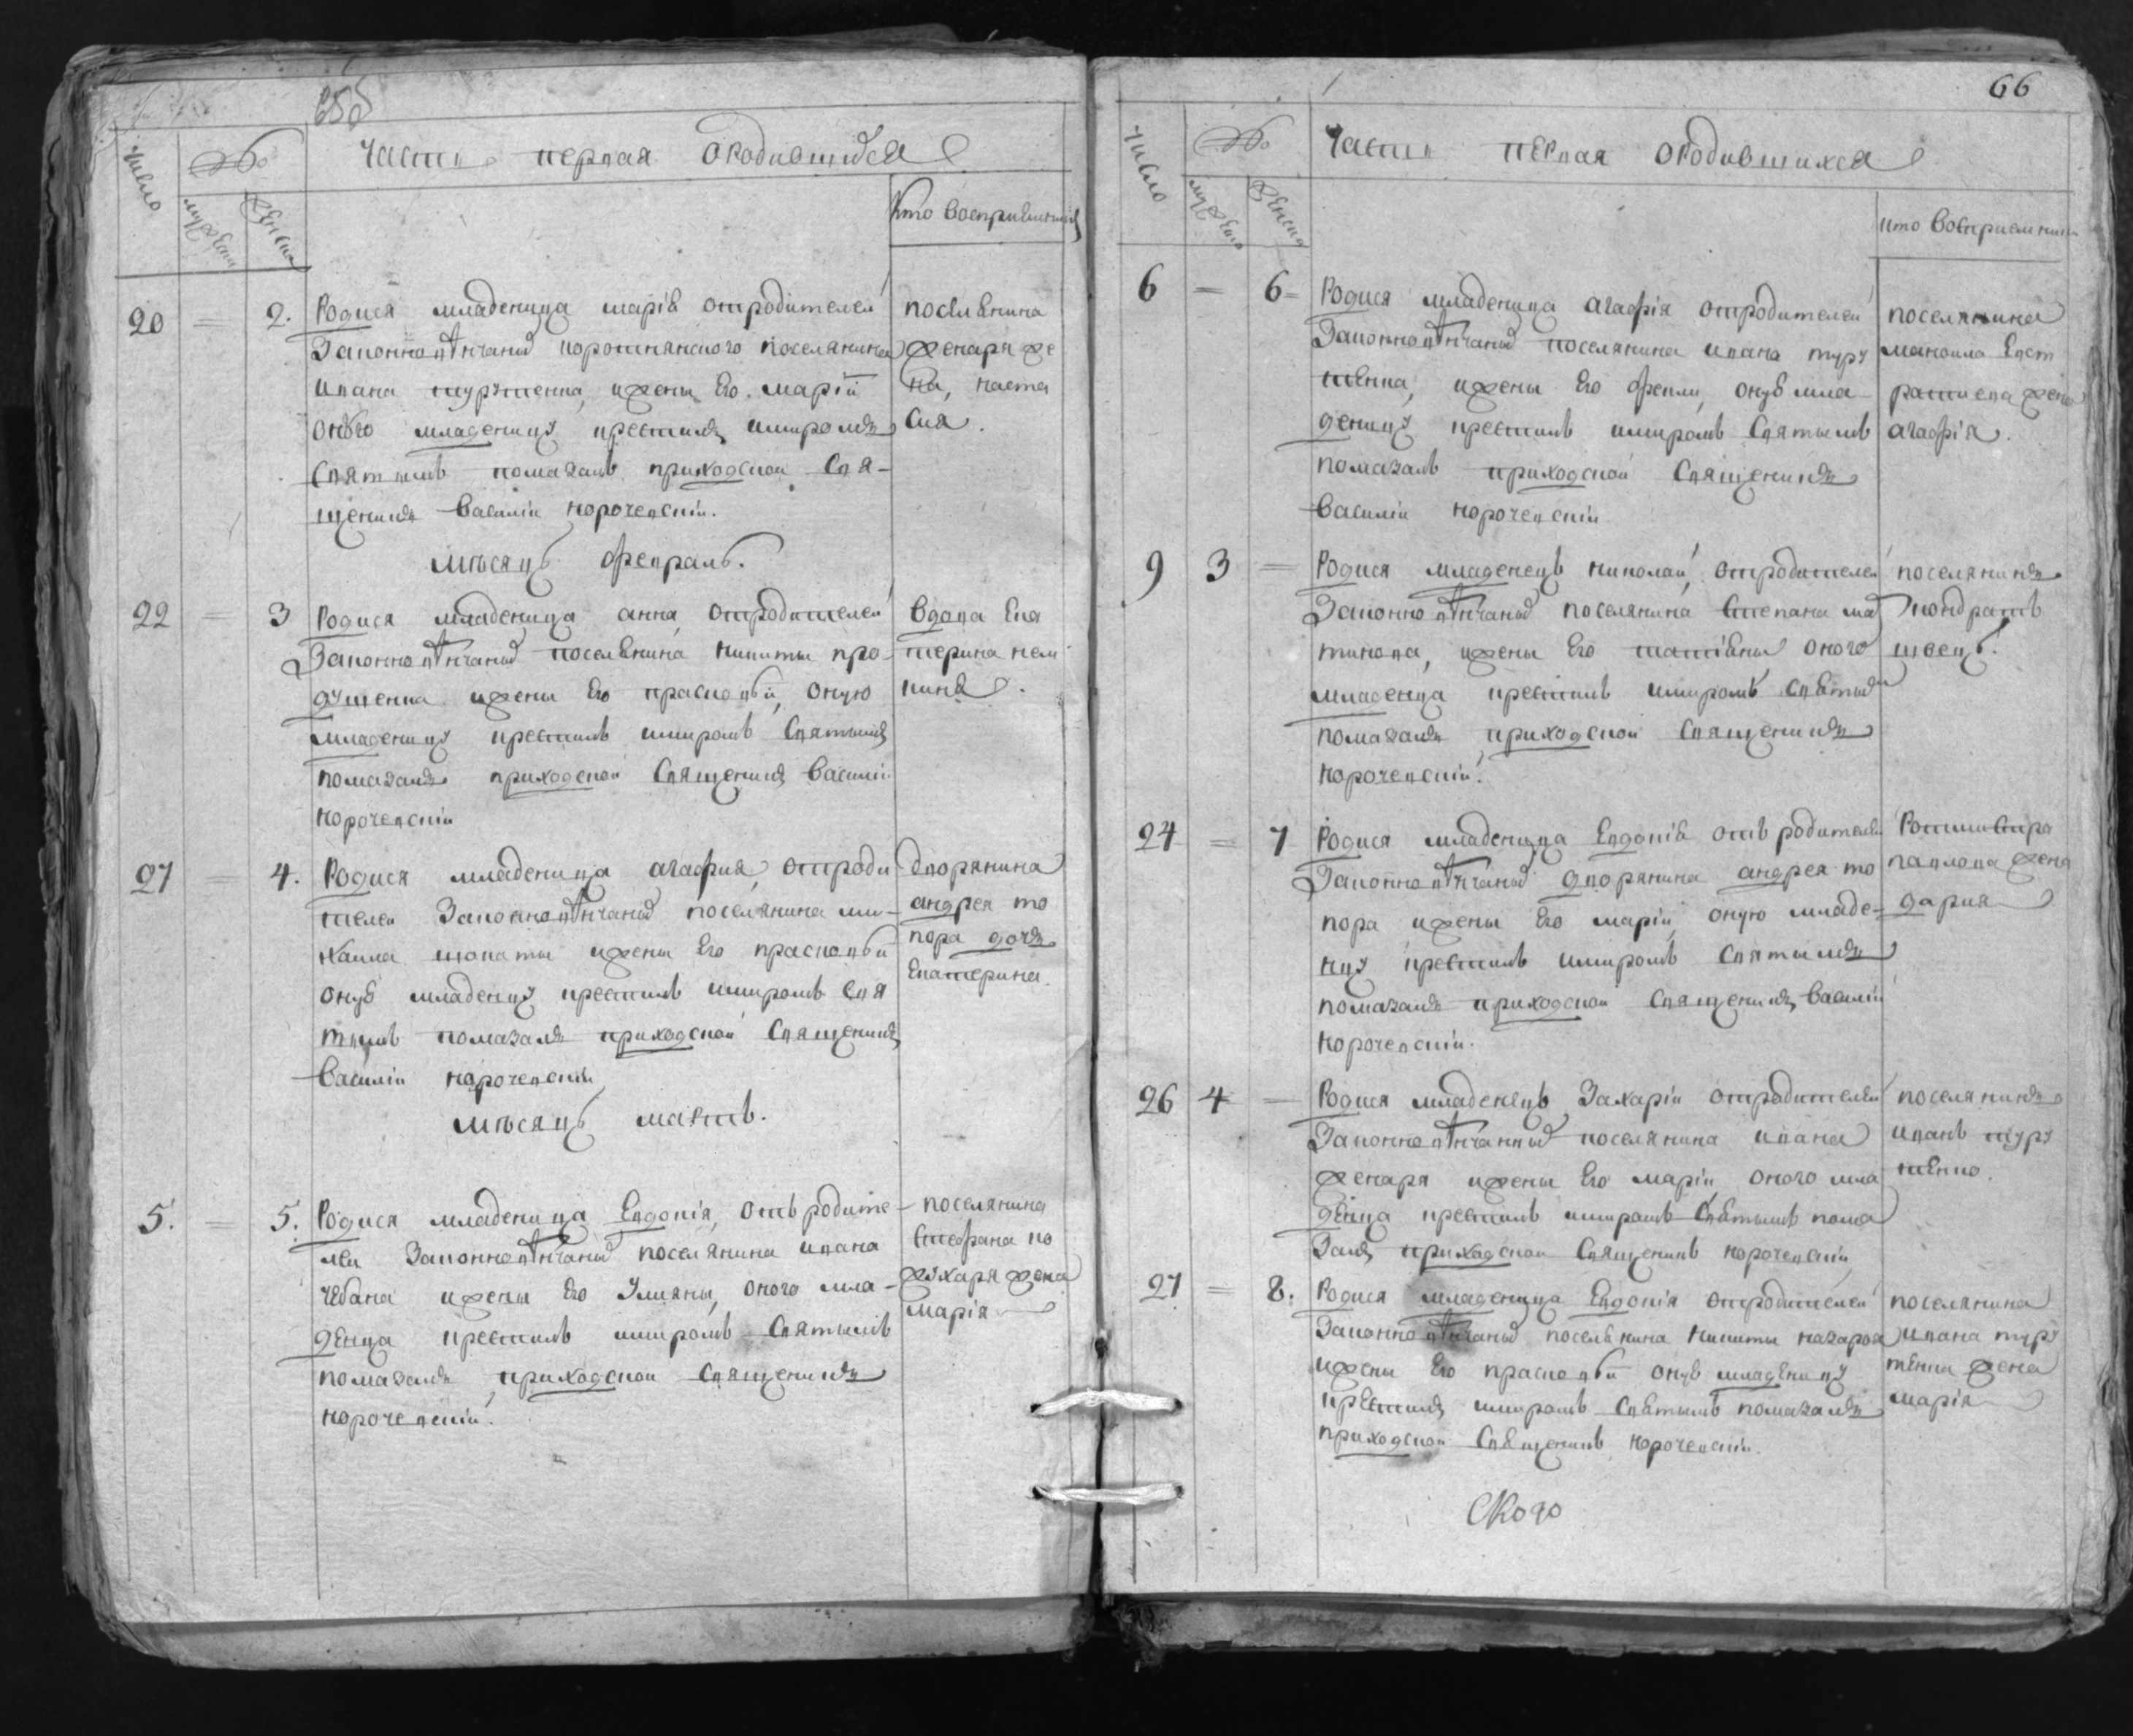 65об
Часть первая ородившихся
число
№
мужеска
женска
кто восприемники
20 = 2. Родися младеница маріѣ отродителей
Законновѣнчаных коротнянского поселянина
ивана турутенка, ижены Его маріи
оную младеницу крестилъ имиромъ
Святымъ помазалъ приходской Свя-
щеникъ Василіи корочевскіи.
поселѣнина
женаря же
на, наста
сия.
мѣсяцъ февраль.
22 = 3 Родися младеница анна отродителей
Законновѣнчаных поселѣнина никиты про-
дущенка ижены Его прасковѣи, оную
младеницу крестилъ имиромъ Святымъ
помазалъ приходской Священикъ Василіи
корочевскіи
вдова Ека
терина
27 = 4. Родися младеница агафия, отроди
телей Законновѣнчаных поселянина ми-
хаила лопаты ижены Его прасковѣи
онуѣ младеницу крестилъ имиромъ Свя
тымъ помазалъ приходской Священикъ
Василіи корочевскіи
дворянина
андрея то
пора дочь
Екатерина.
мѣсяцъ мартъ.
5. = 5. Родися младеница Евдокія, отъ родите-
лей Законновѣнчаных поселянина ивана
чебана ижены Его Улияны, оного мла-
денца крестилъ имиромъ Святымъ
помазалъ приходской Священикъ
корочевскіи.
поселянина
Стефана ко
жухаря жена
марія
66
Часть первая ородившихся
число
№
мужеска
женска
кто восприемники
6 = 6 = Родися младеница агафія отродителей
Законновѣнчаных поселянина ивана туру
тенка, ижены Его феклы, онуѣ мла-
деницу крестилъ имиромъ Святымъ
помазалъ приходской Священикъ
Василіи корочевскіи
поселянина
маноила Евст
ратиева жена
агафія.
9 3 = Родися младенецъ николай, отродителей
Законновѣнчаных поселянина Степана ма
тикова, ижены Его татіяны оного
младенца крестилъ имиромъ Свѣтым
помазалъ приходской Священикъ
корочевскіи.
поселянинъ
кондратъ
швецъ.
24 = 7 Родися младеница Евдокіѣ отъ родителей
Законновѣнчаных дворянина андрея то
пора ижены Его маріи, оную младе-
ницу крестилъ имиромъ Святымъ
помазалъ приходской Священикъ Василіи
корочевскіи.
Ротмистра
павлова жена
дария
26 4 = Родися младенецъ Захаріи отродителей
Законновѣнчанных поселянина ивана
женаря ижены Его маріи оного мла
денца крестилъ имиромъ Свѣтымъ пома
залъ приходской Священикъ корочевскіи
поселянинъ
иванъ туру
тенко.
27 = 8. Родися младеница Евдокія отродителей
Законновѣнчаных поселѣнина Никиты назаров
ижены Его прасковѣи онуѣ младеницу
крестилъ имиромъ Свѣтымъ помазалъ
приходской Свѣщеникъ корочевскіи.
поселянина
ивана туру
тенка жена
марія